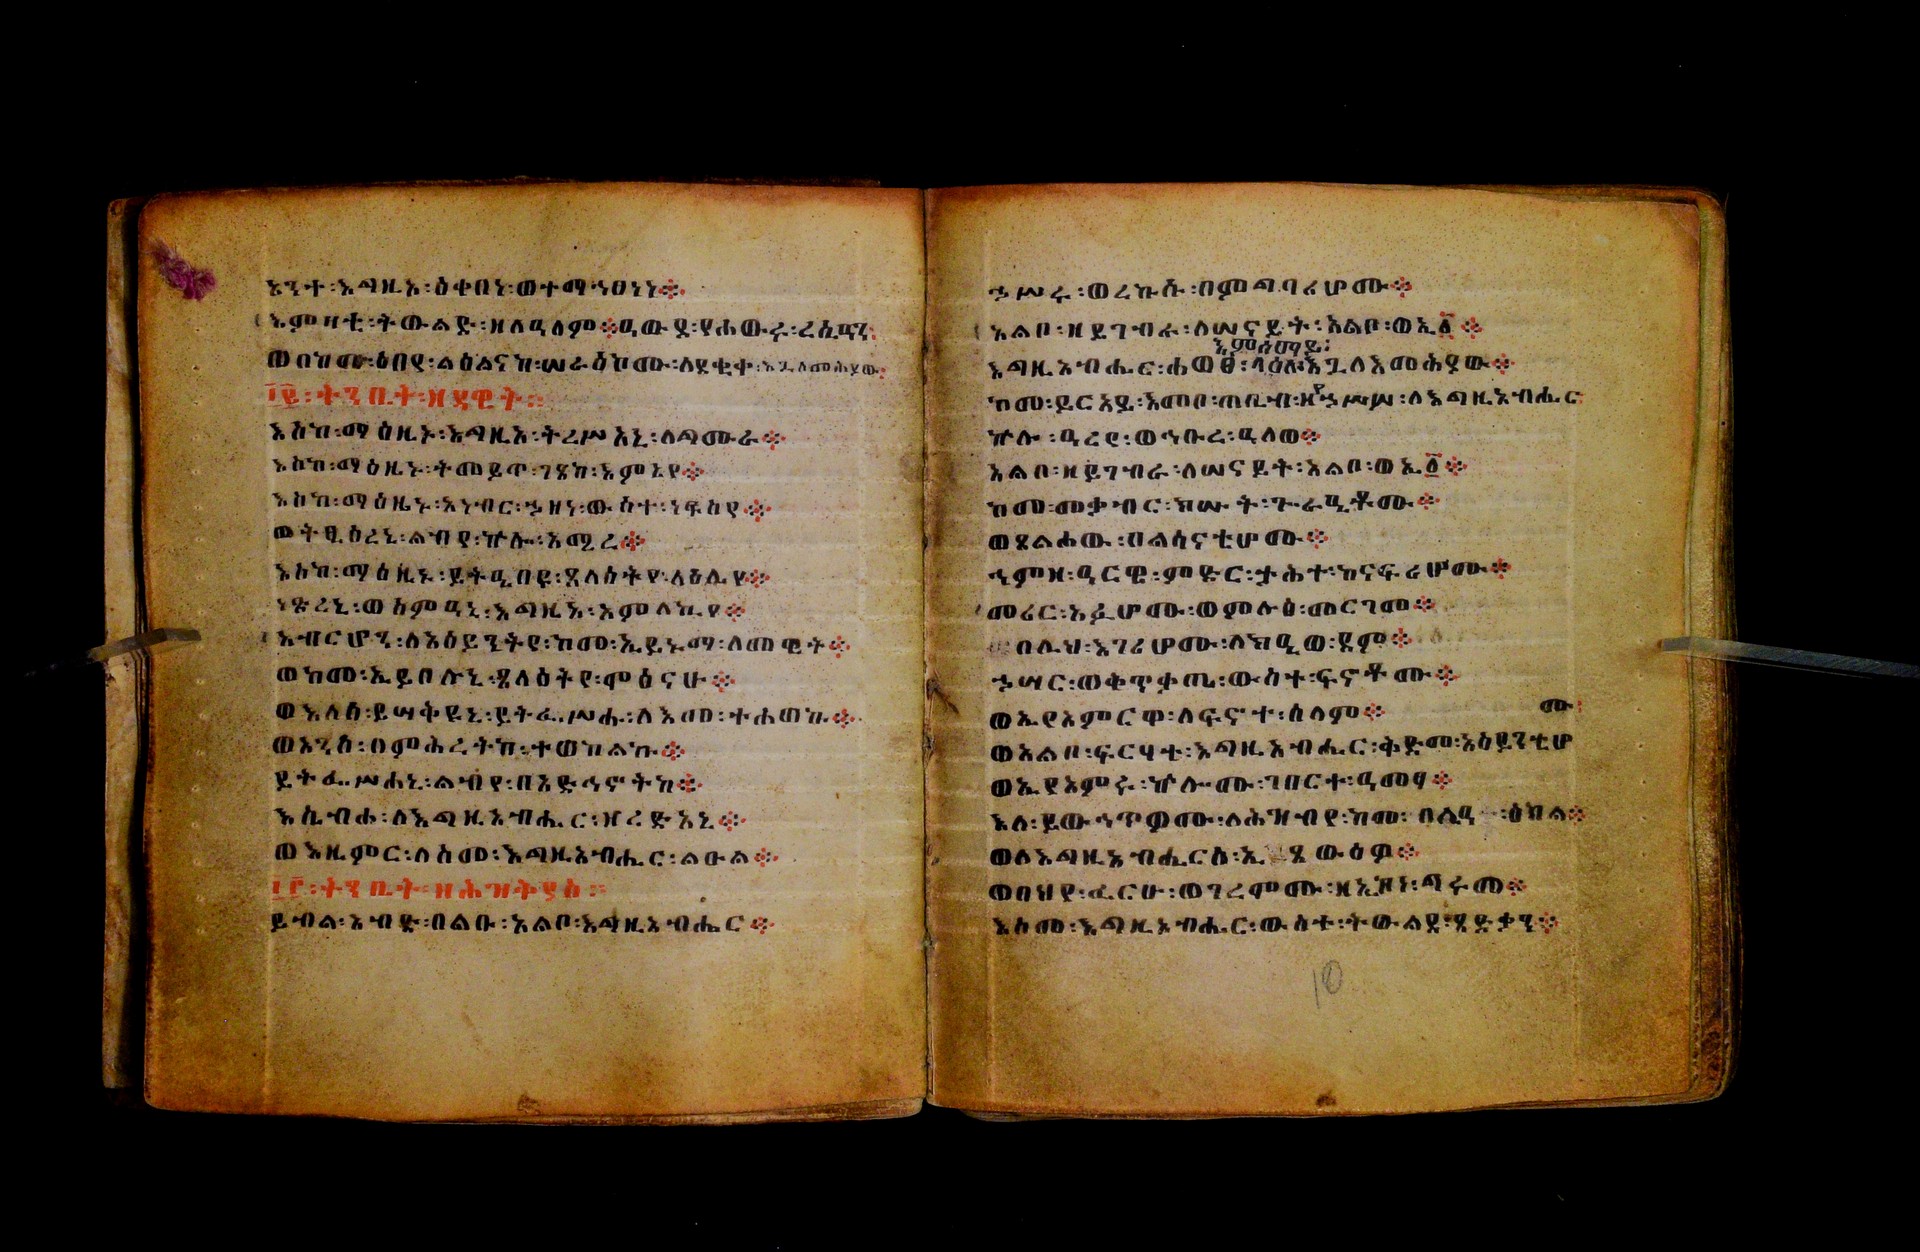 አንተ፡እግዚኦ፡ዕቀበነ፡ወተማኅፀነነ፨
እምዛቲ፡ትውልድ፡ዘለዓለም፨ዓውደ፡የሐውሩ፡ረሲዓን፡
ወበከመ፡ዕበየ፡ልዕልናከ፡ሠራዕኮሙ፡ለደቂቀ፡እጓለመሕያው፡
፲፪፡ትንቢት፡ዘዳዊት፡፡
እስከ፡ማዕዜኑ፡እግዚኦ፡ትረሥአኒ፡ለግሙራ፨
እስከ፡ማዕዜኑ፡ትመይጥ፡ገጸከ፡እምኔየ፨
እስከ፡ማዕዜኑ፡አነብር፡ኃዘነ፡ውስተ፡ነፍስየ፨
ወትፄዕረኒ፡ልብየ፡ኵሎ፡አሚረ፨
እስከ፡ማዕዜኑ፡ይትዔበዩ፡ጸላዕትየ፡ላዕሌየ፨
ነጽረኒ፡ወስምዓኒ፡እግዚኦ፡አምላኪየ፨
አብርሆን፡ለአዕይንትየ፡ከመ፡ኢይኑማ፡ለመዊት፨
ወከመ፡ኢይበሉኒ፡ጸላዕትየ፡ሞዕናሁ፨
ወእለሰ፡ይሣቅዩኒ፡ይትፌሥሑ፡ለእመ፡ተሐወኩ፨
ወአንሰ፡በምሕረትከ፡ተወከልኩ፨
ይትፌሥሐኒ፡ልብየ፡በአድኅኖትከ፨
እሴብሖ፡ለእግዚአብሔር፡ዘረድአኒ፨
ወእዜምር፡ለስመ፡እግዚአብሔር፡ልዑል፨
፲፫፡ትንቢት፡ዘሕዝቅያስ፡፡
ይብል፡አብድ፡በልቡ፡አልቦ፡እግዚአብሔር፨
ኃሥሩ፡ወረኵሱ፡በምግባሪሆሙ፨
አልቦ፡ዘይገብራ፡ለሠናይት፡አልቦ፡ወኢ፩፨
እምሰማይ፡
እግዚአብሔር፡ሐወፀ፡ላዕለ፡እጓለእመሕያው፨
ከመ፡ይርአይ፡እመቦ፡ጠቢብ፡ዘየኃሥሥ፡ለእግዚአብሔር፡
ኵሉ፡ዓረየ፡ወኅቡረ፡ዓለወ፨
አልቦ፡ዘይገብራ፡ለሠናይት፡አልቦ፡ወኢ፩፨
ከመ፡መቃብር፡ክሡት፡ጐራዒቶሙ፨
ወጸልሐው፡በልሳናቲሆሙ፨
ኅምዘ፡ዓርዌ፡ምድር፡ታሕተ፡ከናፍሪሆሙ፨
መሪር፡አፉሆሙ፡ወምሉዕ፡መርገመ፨
በሊህ፡እገሪሆሙ፡ለክዒወ፡ደም፨
ኃሣር፡ወቅጥቃጤ፡ውስተ፡ፍኖቶሙ፨
ወኢየአምርዋ፡ለፍኖተ፡ሰላም፨
ወአልቦ፡ፍርሃተ፡እግዚአብሔር፡ቅድመ፡አዕይንቲሆ
ሙ፡
ወኢየአምሩ፡ኵሎሙ፡ገበርተ፡ዓመፃ፨
እለ፡ይውኅጥዎሙ፡ለሕዝብየ፡ከመ፡በሊዓ፡ዕክል፨
ወለእግዚአብሔርሰ፡ኢጸውዕዎ፨
ወበህየ፡ፈርሁ፡ወገረሞሙ፡ዘኢኮነ፡ግሩመ፨
እስመ፡እግዚአብሔር፡ውስተ፡ትውልደ፡ጻድቃን፨
10